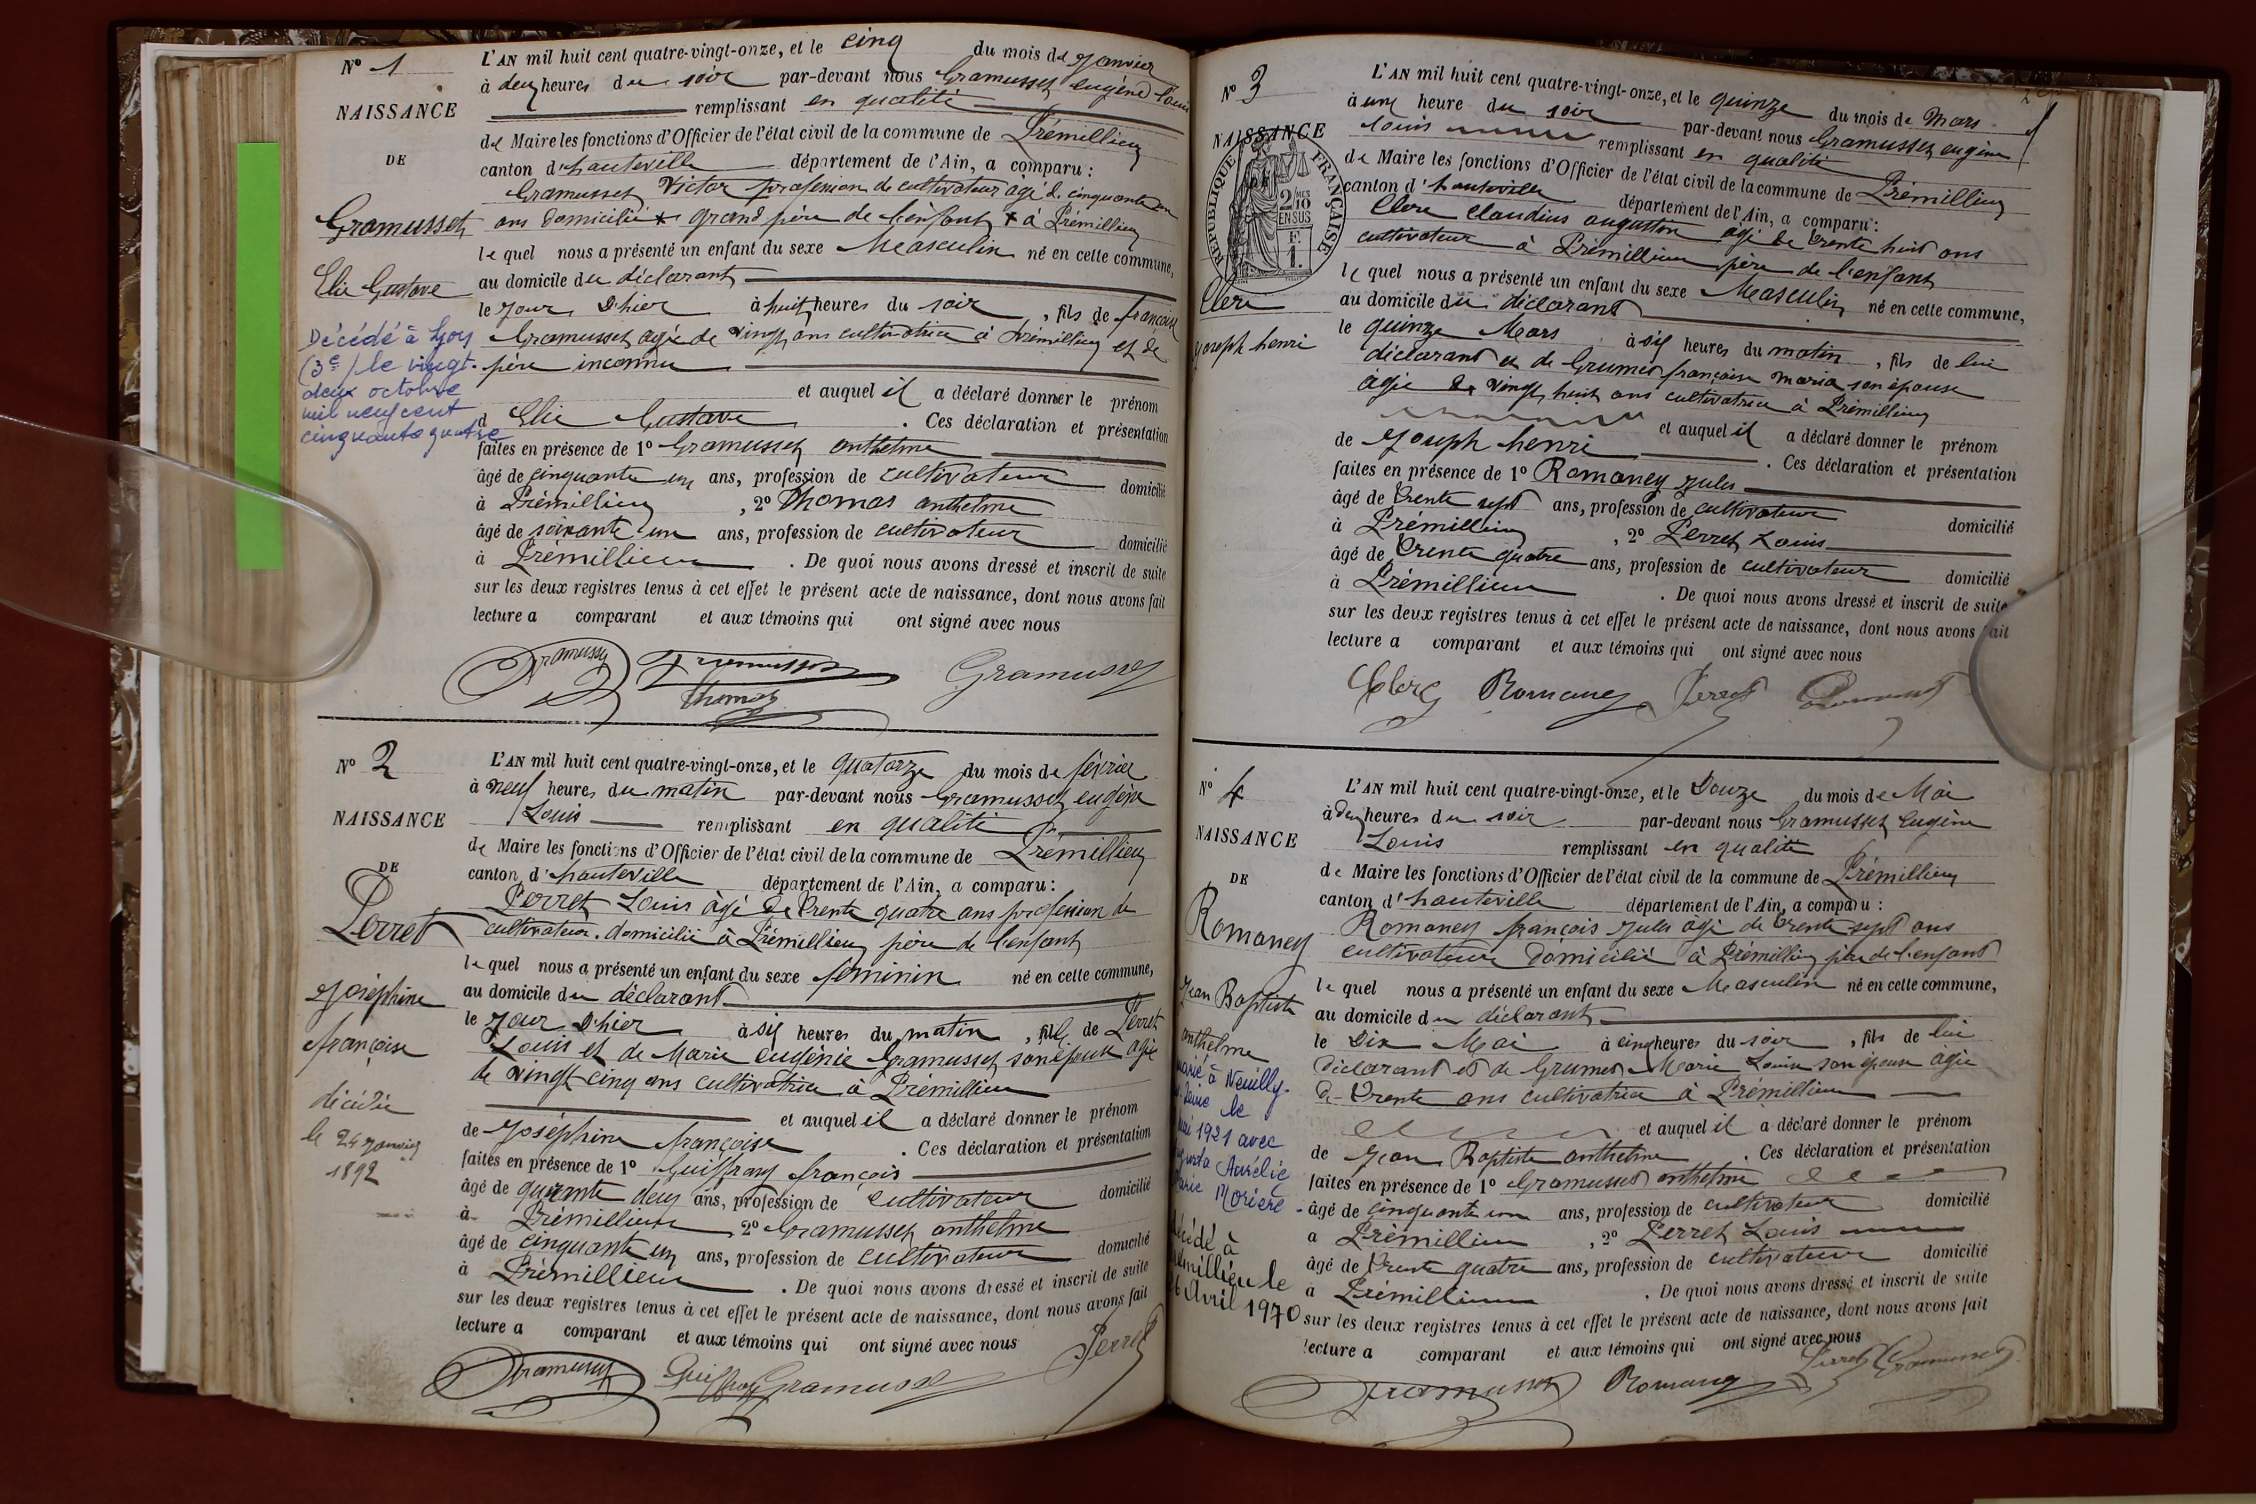 N° 1
NAISSANCE
DE
Gramusset
Elie Gustave
Décédé à Lyon
(3e) le vingt-
deux octobre
mil neuf cent
cinquante quatre
L'AN mil huit cent quatre-vingt-onze, et le cinq du mois de Janvier
à deux heures du soir par-devant nous Gramusset eugène Louis
remplissant en qualité
de Maire les fonctions d'Officier de l'état civil de la commune de Prémillieu
canton d'hauteville département de l'Ain, a comparu :
Gramusset Victor profession de cultivateur âgé de cinquante un
ans domicilié * grand père de l'enfant * à Prémillieu
lequel nous a présenté un enfant du sexe Masculin né en cette commune,
au domicile du déclarant
le jour d'hier à huit heures du soir, fils de françoise
Gramusset agée de vingt ans cultivatrice à Prémillieu et de
père inconnu
et auquel il a déclaré donner le prénom
d Elie Gustave . Ces déclaration et présentation
faites en présence de 1° Gramusset anthelme
âgé de cinquante un ans, profession de cultivateur domicilié
à Prémillieu , 2° Thomas anthelme
âgé de soixante un ans, profession de cultivateur domicilié
à Prémillieu . De quoi nous avons dressé et inscrit de suite
sur les deux registres tenus à cet effet le présent acte de naissance, dont nous avons fait
lecture a comparant et aux témoins qui ont signé avec nous
Gramusset Gramusset Gramusset
Thomas
N° 2
NAISSANCE
DE
Perret
Joséphine
françoise
décédée
le 24 janvier
1892
L'AN mil huit cent quatre-vingt-onze, et le quatorze du mois de février
à neuf heures du matin par-devant nous Gramusset eugène
Louis remplissant en qualité
de Maire les fonctions d'Officier de l'état civil de la commune de Prémillieu
canton d'hauteville département de l'Ain, a comparu :
Perret Louis âgé de trente quatre ans profession de
cultivateur domicilié à Prémillieu père de l'enfant
lequel nous a présenté un enfant du sexe féminin né en cette commune,
au domicile du déclarant
le jour d'hier à six heures du matin, fille de Perret
Louis et de Marie eugénie Gramusset son épouse agée
de vingt-cinq ans cultivatrice à Prémillieu
et auquel il a déclaré donner le prénom
de Joséphine françoise . Ces déclaration et présentation
faites en présence de 1° Guiffray françois
âgé de quarante deux ans, profession de cultivateur domicilié
à Prémillieu 2° Gramusset anthelme
âgé de cinquante un ans, profession de cultivateur domicilié
à Prémillieu . De quoi nous avons dressé et inscrit de suite
sur les deux registres tenus à cet effet le présent acte de naissance, dont nous avons fait
lecture a comparant et aux témoins qui ont signé avec nous
Gramusset Guiffray Gramusset Perret
N° 3
NAISSANCE
RÉPUBLIQUE FRANÇAISE
2 MES
10
EN SUS
F.
1.
Clerc
Joseph henri
L'AN mil huit cent quatre-vingt-onze, et le quinze du mois de Mars
à une heure du soir par-devant nous Gramusset eugène
Louis remplissant en qualité
de Maire les fonctions d'Officier de l'état civil de la commune de Prémillieu
canton d'hauteville département de l'Ain, a comparu :
Clerc Claudius augustin âgé de trente huit ans
cultivateur à Prémillieu père de l'enfant
lequel nous a présenté un enfant du sexe Masculin né en cette commune,
au domicile du déclarant
le quinze Mars à six heures du matin, fils de lui
déclarant et de Grumet françoise maria son épouse
âgée de vingt huit ans cultivatrice à Prémillieu
et auquel il a déclaré donner le prénom
de Joseph henri . Ces déclaration et présentation
faites en présence de 1° Romaney jules
âgé de trente sept ans, profession de cultivateur domicilié
à Prémillieu , 2° Perret Louis
âgé de trente quatre ans, profession de cultivateur domicilié
à Prémillieu . De quoi nous avons dressé et inscrit de suite
sur les deux registres tenus à cet effet le présent acte de naissance, dont nous avons fait
lecture a comparant et aux témoins qui ont signé avec nous
Clerc Romaney Perret Gramusset
N° 4
NAISSANCE
DE
Romaney
Jean Baptiste
anthelme
marié à Neuilly-
s. Seine le
mai 1921 avec
Aurélie
Marie Morière
décédé à
Prémillieu le
Avril 1970
L'AN mil huit cent quatre-vingt-onze, et le Douze du mois de Mai
à deux heures du soir par-devant nous Gramusset Eugène
Louis remplissant en qualité
de Maire les fonctions d'Officier de l'état civil de la commune de Prémillieu
canton d'hauteville département de l'Ain, a comparu :
Romaney françois jules âgé de trente sept ans
cultivateur domicilié à Prémillieu père de l'enfant
lequel nous a présenté un enfant du sexe Masculin né en cette commune,
au domicile du déclarant
le Dix Mai à cinq heures du soir, fils de lui
déclarant et de Grumet Marie Louise son épouse âgée
de trente ans cultivatrice à Prémillieu
et auquel il a déclaré donner le prénom
de Jean Baptiste anthelme . Ces déclaration et présentation
faites en présence de 1° Gramusset anthelme
âgé de cinquante un ans, profession de cultivateur domicilié
a Prémillieu , 2° Perret Louis
âgé de trente quatre ans, profession de cultivateur domicilié
à Prémillieu . De quoi nous avons dressé et inscrit de suite
sur les deux registres tenus à cet effet le présent acte de naissance, dont nous avons fait
lecture a comparant et aux témoins qui ont signé avec nous
Gramusset Romaney Perret Gramusset